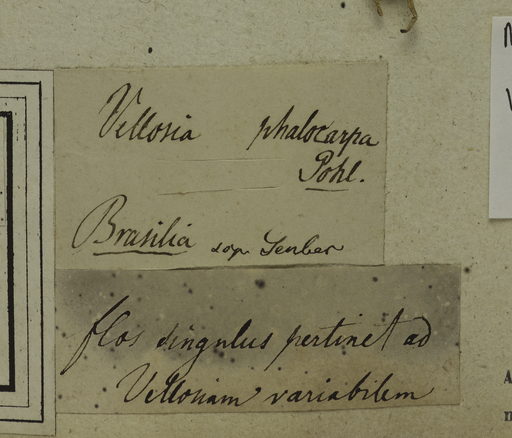 Vellosia phalocarpa
Pohl.
Brasilia
flos singulus pertinet ad
Vellosiam variabilem